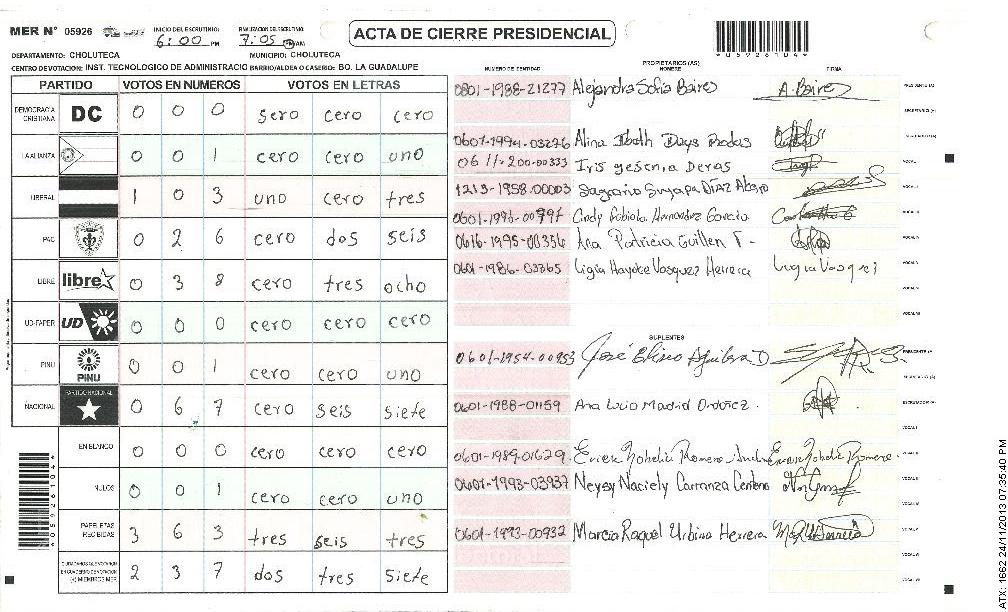 MER N° 05926
INICIO DEL ESCRUTINIO: 6:00 PM
7:05
ACTA DE CIERRE PRESIDENCIAL
DEPARTAMENTO: CHOLUTECA MUNICIPIO: CHOLUTECA
CENTRO DE VOTACION: INST. TECNOLOGICO DE ADMINISTRACIO BARRIO/ALDEA O CASERIO: BO. LA GUADALUPE
PARTIDO VOTOS EN NUMEROS VOTOS EN LETRAS
DEMOCRACIA CRISTIANA DC 0 0 0 sero cero cero
LA ALIANZA 0 0 1 cero cero uno
LIBERAL 1 0 3 uno cero tres
PAC 0 2 6 cero dos seis
LIBRE libre 0 3 8 cero tres ocho
UD-FAPER UD 0 0 0 cero cero cero
PINU PINU 0 0 1 cero cero uno
NACIONAL PARTIDO NACIONAL 0 6 7 cero seis siete
EN BLANCO 0 0 0 cero cero cero
NULOS 0 0 1 cero cero uno
PAPELETAS RECIBIDAS 3 6 3 tres seis tres
(+) MIEMBROS MER 2 3 7 dos tres siete
NUMERO DE IDENTIDAD PROPIETARIOS (AS) NOMBRE FIRMA
0801-1988-21277 Alejandra Sofia Baires A. Baires
0607-1994-03276 Alina
0611-200-00333 Iris yesenia Deras
1213-1958-00003 Sagrario Suyapa DÍAZ
0601-1996-00797 Cindy Fabiola Hernandez Garcia
0616-1995-00356 Ana Patricia Guillen T.
0601-1986-03365 Ligia Haydee Vasquez Herrera Ligia Vasquez
SUPLENTES
0601-1954-00953 José Eliseo Aguilera D
0601-1988-01159 Ana Lucia Madrid Ordoñez.
0601-1989-01629. Romero
0601-1993-03937 Neysy Naciely Carranza Centeno
0601-1993-00932 Marcia Raquel Urbina Herrera
ATX: 1662 24/11/2013 07:35:40 PM